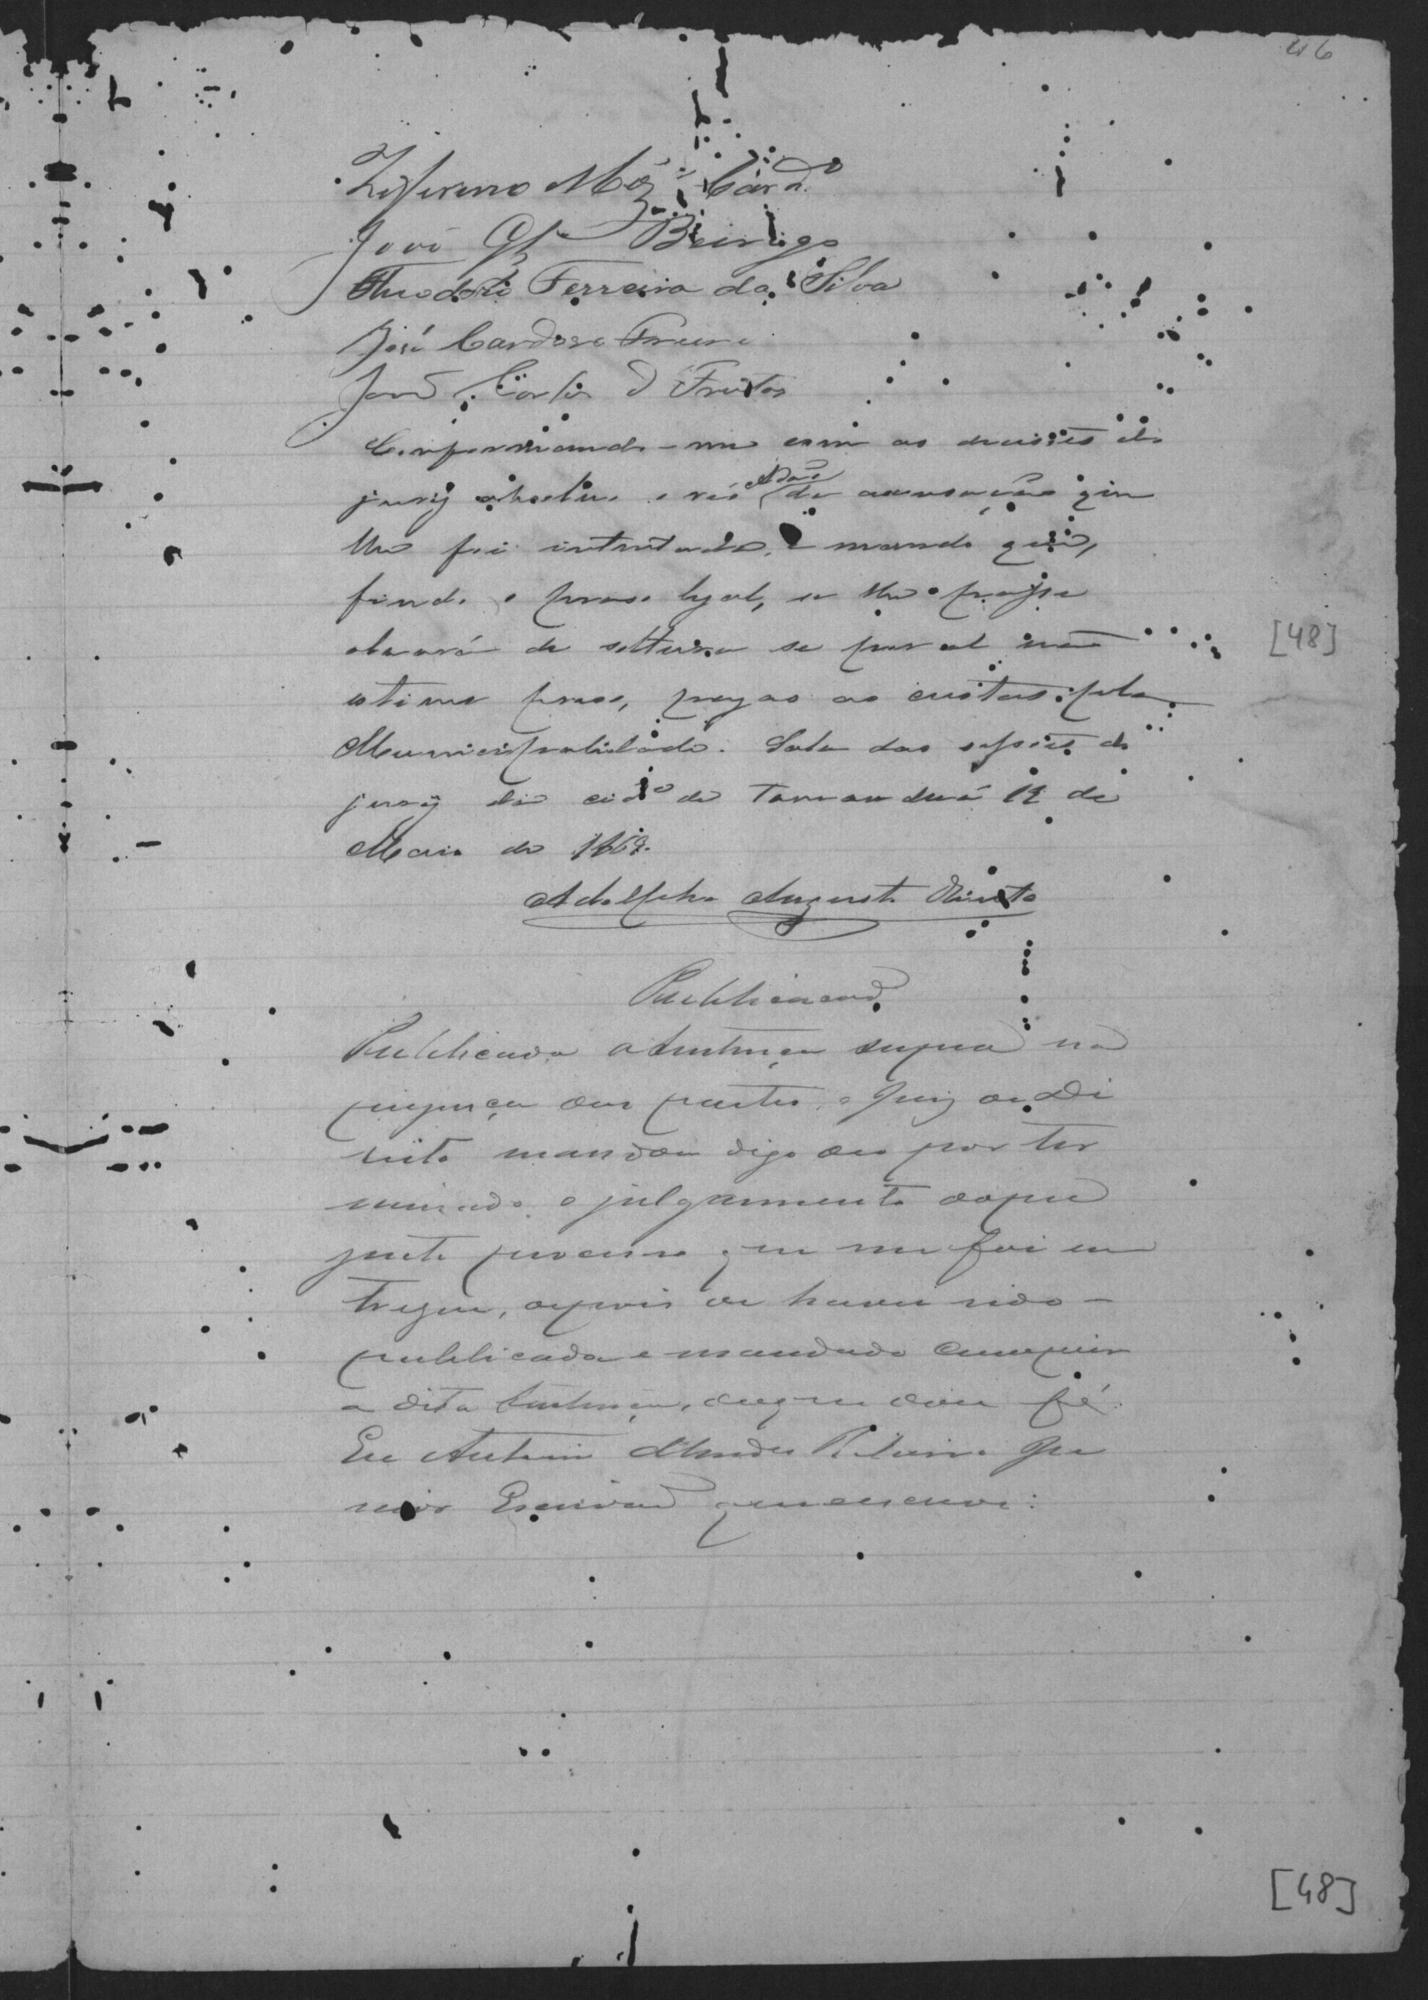 46
Zeferino
José Glz
Theodoro Ferreira da Silva
José Cardoso Freire
João Cortes d Freitas
Conformando-me com as decisões do
jury absolvo o réo Adão da accusação que
lhe foi intentada, e mando que,
findo o praso legal, se lhe passe
alvará de soltura se por al não
estiver preso, pagas as custas pela
Municipalidade. Sala das sessões do
jury da cide de Tamanduá 12 de
Maio de
Adolpho Augusto Olinto
Publicacaõ
Publicada a Sentença supra na
presença das partes, o Juiz de Di
reito mandou digo deu por ter
minado o julgamento dopre
zente processo que me foi en
tregue, depois de haver sido
publicada e mandado cumprir
a dita Sentença, doque dou fé.
Eu Antonio Mendes Ribeiro Ju
nior Escrivaõ que escrevi:
[48]
[48]